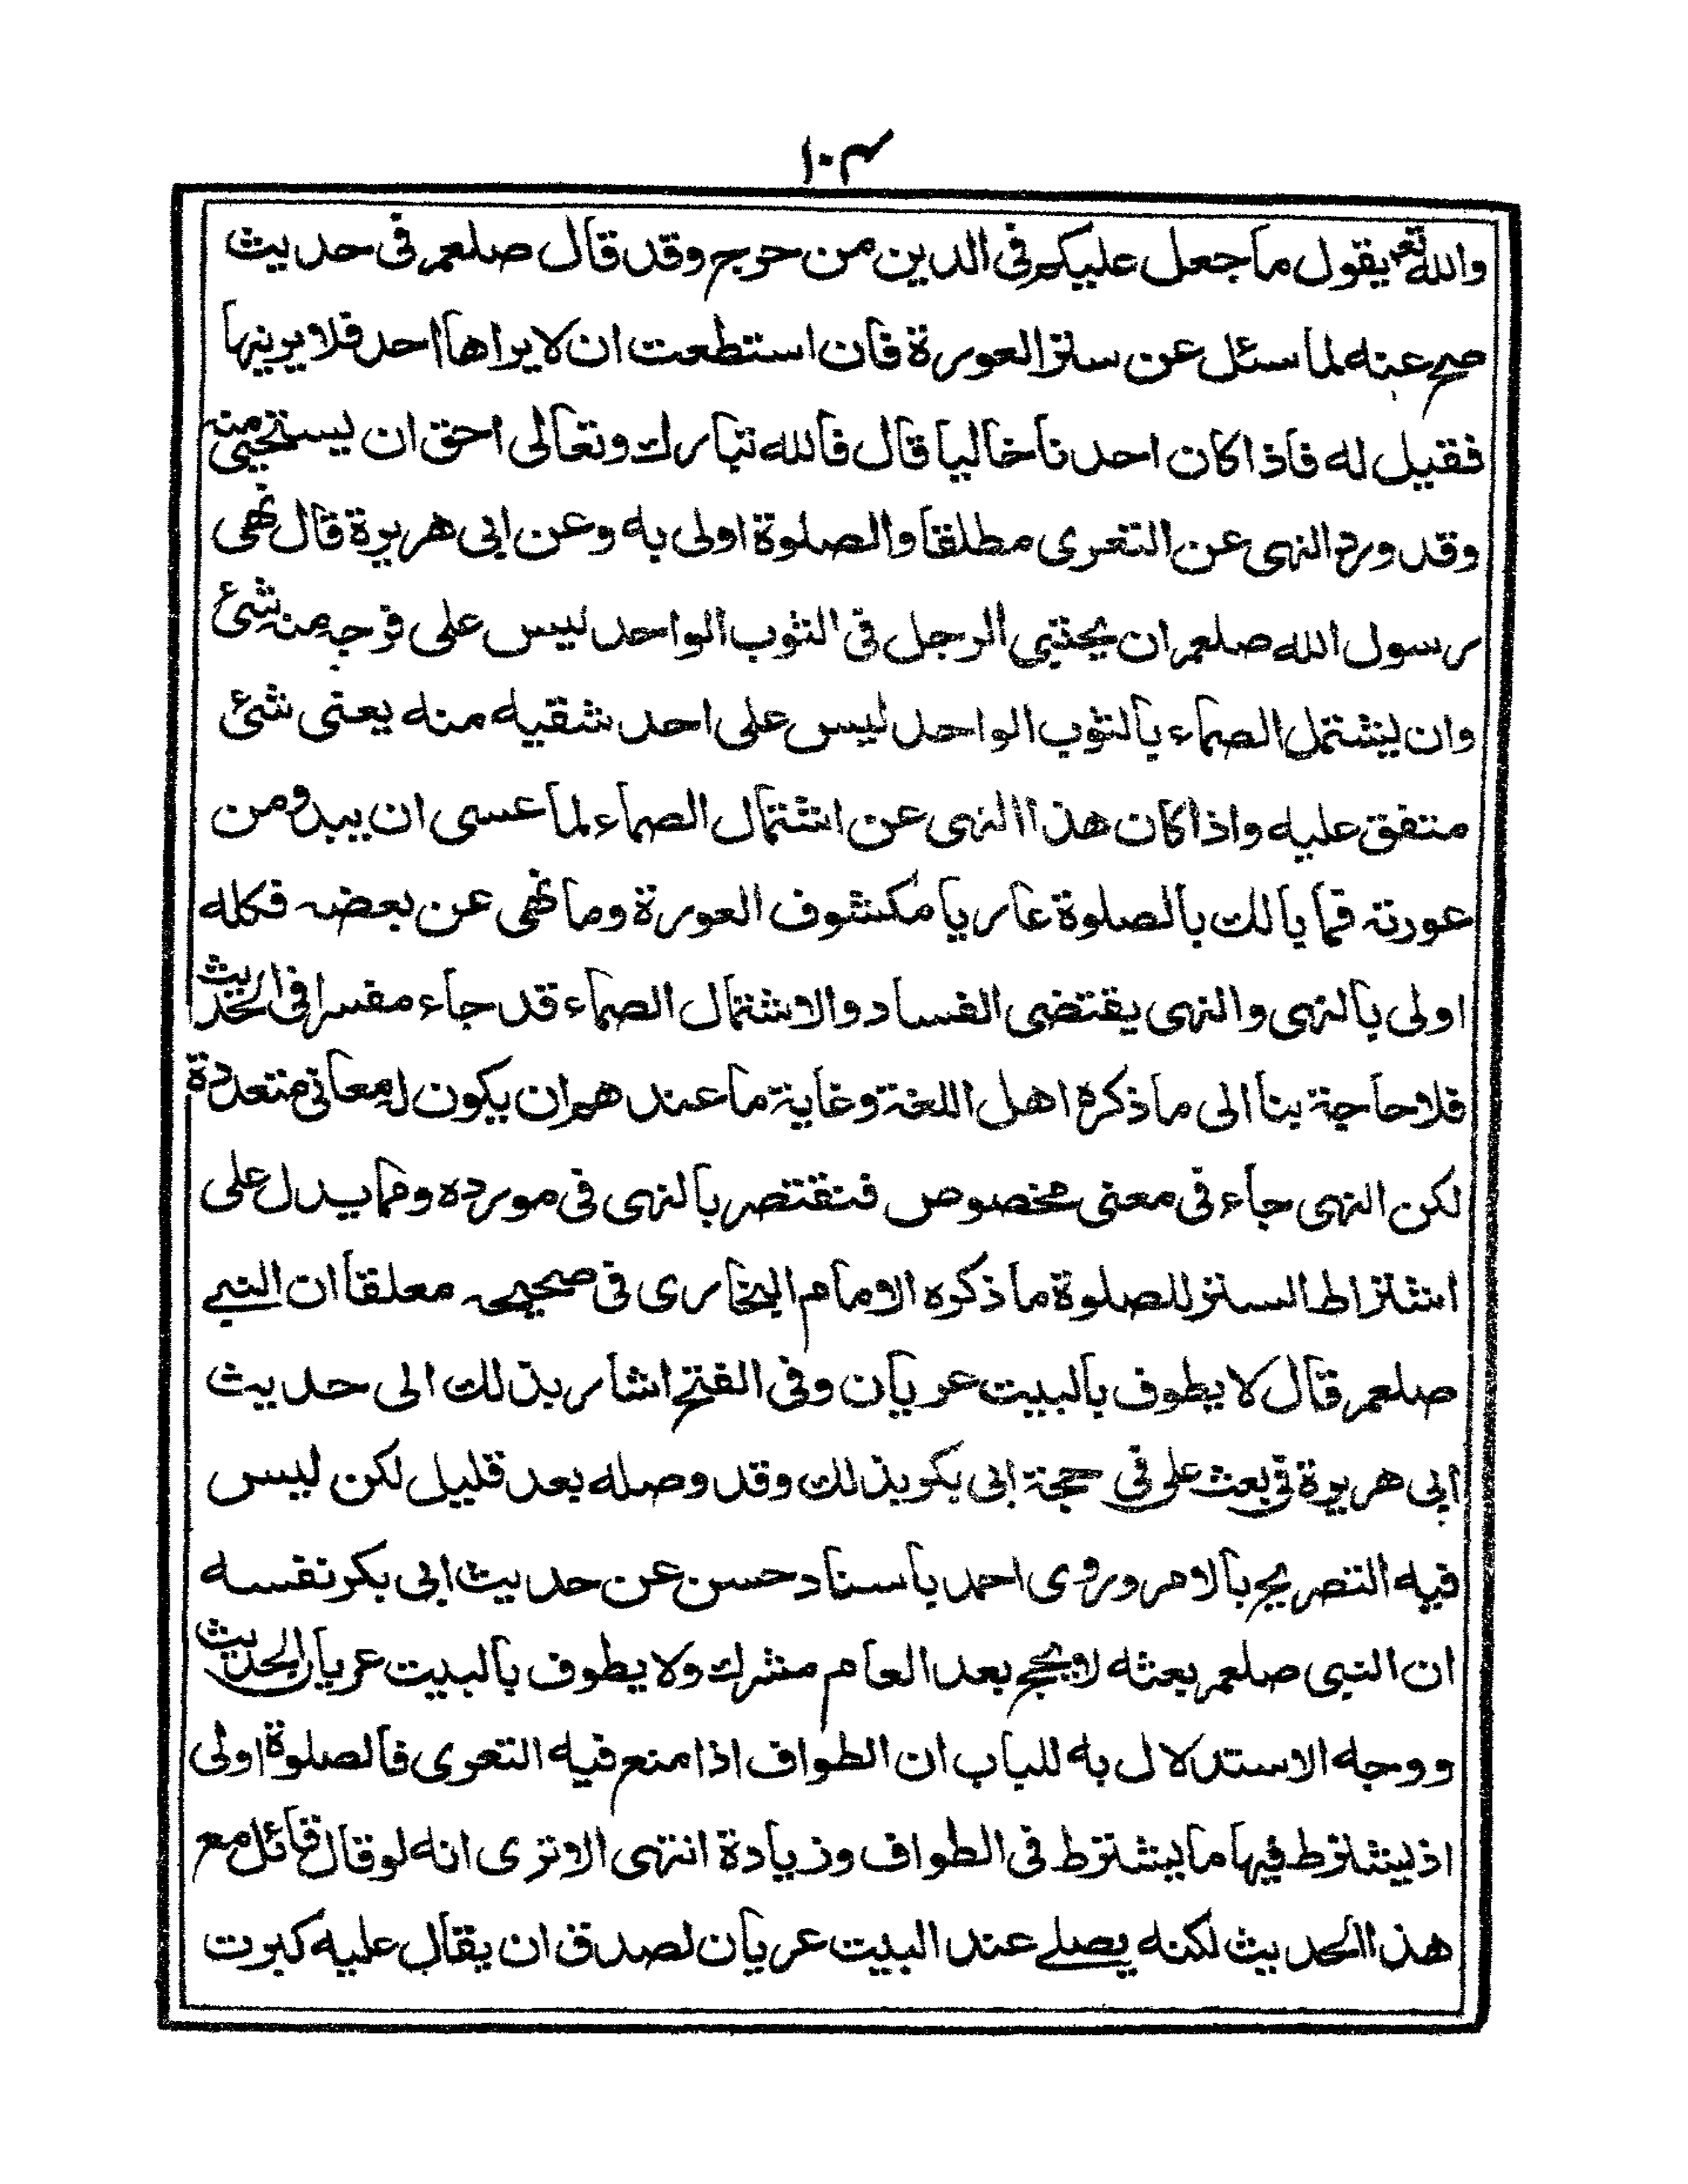 ١٠٣
والله تعم يقول ما جعل عليكم في الدين من حرج وقد قال صلعم في حديث
صح عنه لما سئل عن ستر العورة فان استطعت ان لا يراها احد فلا يرينها
فقيل له فاذا كان احدنا خاليا قال فالله تبارك وتعالى احق ان يستحيى منه
وقد ورد النهى عن التعرى مطلقا والصلوة اولى به وعن ابى هريرة قال نهى
رسول الله صلعم ان يحتبى الرجل فى الثوب الواحد ليس على فرجه منه شئ
وان يشتمل الصماء بالثوب الواحد ليس على احد شقيه منه يعنى شئ
متفق عليه واذا كان هذا النهى عن اشتمال الصماء لما عسى ان يبدو من
عورته فما بالك بالصلوة عاريا مكشوف العورة وما نهى عن بعضه فكله
اولى بالنهى والنهى يقتضى الفساد والاشتمال الصماء قد جاء مفسرا فى الحديث
فلا حاجة بنا الى ما ذكره اهل اللغة وغاية ما عندهم ان يكون له معانى متعددة
لكن النهى جاء فى معنى مخصوص فنقتصر بالنهى فى مورده ومما يدل على
اشتراط الستر للصلوة ما ذكره الامام البخارى فى صحيحه معلقا ان النبي
صلعم قال لا يطوف بالبيت عريان وفى الفتح اشار بذلك الى حديث
ابى هريرة فى بعث على فى حجة ابى بكر بذلك وقد وصله بعد قليل لكن ليس
فيه التصريح بالامر وروى احمد باسناد حسن عن حديث ابى بكر نفسه
ان النبى صلعم بعثه لا يحج بعد العام مشرك ولا يطوف بالبيت عريان الحديث
ووجه الاستدلال به للباب ان الطواف اذا منع فيه التعرى فالصلوة اولى
اذ يشترط فيها ما يشترط فى الطواف وزيادة انتهى الا ترى انه لو قال قائل مع
هذا الحديث لكنه يصلے عند البيت عريان لصدق ان يقال عليه كبرت